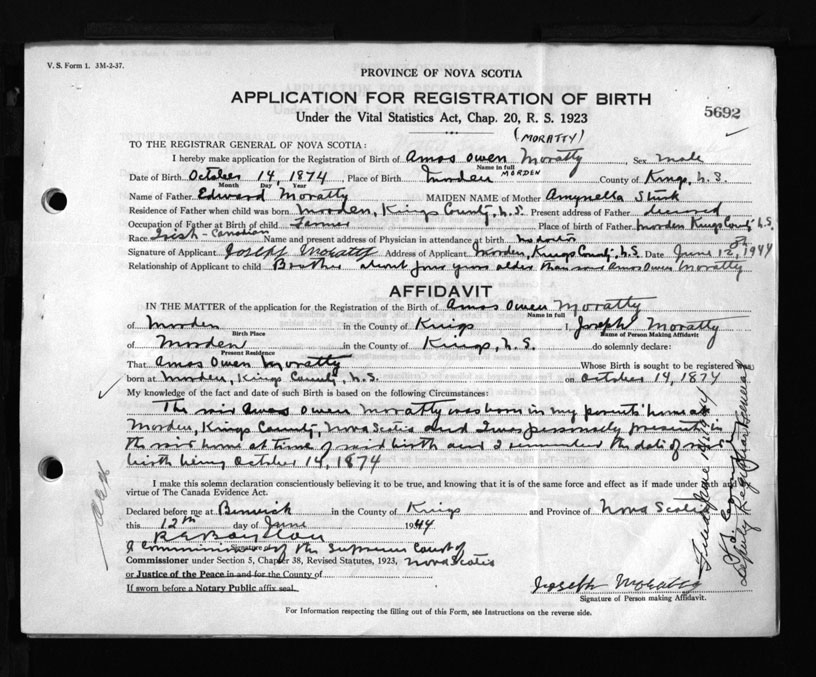 V. S. Form 1. 3M-2-37.
PROVINCE OF NOVA SCOTIA
APPLICATION FOR REGISTRATION OF BIRTH
5692
Under the Vital Statistics Act, Chap. 20, R. S. 1923
(MORATTY)
TO THE REGISTRAR GENERAL OF NOVA SCOTIA:
I hereby make application for the Registration of Birth of Amos Owen Moratty, Sex male
Name in full
Date of Birth October 14, 1874, Place of Birth Morden MORDEN County of Kings, N.S.
Month Day Year
Name of Father Edward Moratty MAIDEN NAME of Mother Amynella
Residence of Father when child was born Morden, Kings County, N.S. Present address of Father deceased
Occupation of Father at Birth of child Farmer Place of birth of Father Morden Kings County N.S.
Race Irish-Canadian Name and present address of Physician in attendance at birth no doctor
Signature of Applicant Joseph Moratty Address of Applicant Morden, Kings County, N.S. Date June 12, 1944
Relationship of Applicant to child Brother about four years older than said Amos Owen Moratty
AFFIDAVIT
IN THE MATTER of the application for the Registration of the Birth of Amos Owen Moratty
Name in full
of Morden in the County of Kings I, Joseph Moratty
Birth Place Name of Person Making Affidavit
of Morden in the County of Kings, N.S. do solemnly declare:
Present Residence
That Amos Owen Moratty Whose Birth is sought to be registered was
born at Morden, Kings County, N.S. on October 14, 1874
My knowledge of the fact and date of such Birth is based on the following Circumstances:
The said Amos Owen Moratty was born in my parents' home at
Morden, Kings County, Nova Scotia and I was personally present in
the said home at time of said birth and I remember the date of said
birth being October 14, 1874
I make this solemn declaration conscientiously believing it to be true, and knowing that it is of the same force and effect as if made under oath and by
virtue of The Canada Evidence Act.
Declared before me at Berwick in the County of Kings and Province of Nova Scotia
this 12th day of June 1944
Signature
A Commissioner of the Supreme Court of
Commissioner under Section 5, Chapter 38, Revised Statutes, 1923, Nova Scotia
or Justice of the Peace in and for the County of
If sworn before a Notary Public affix seal.
Joseph Moratty
Signature of Person making Affidavit.
For Information respecting the filling out of this Form, see Instructions on the reverse side.
Deputy Registrar General